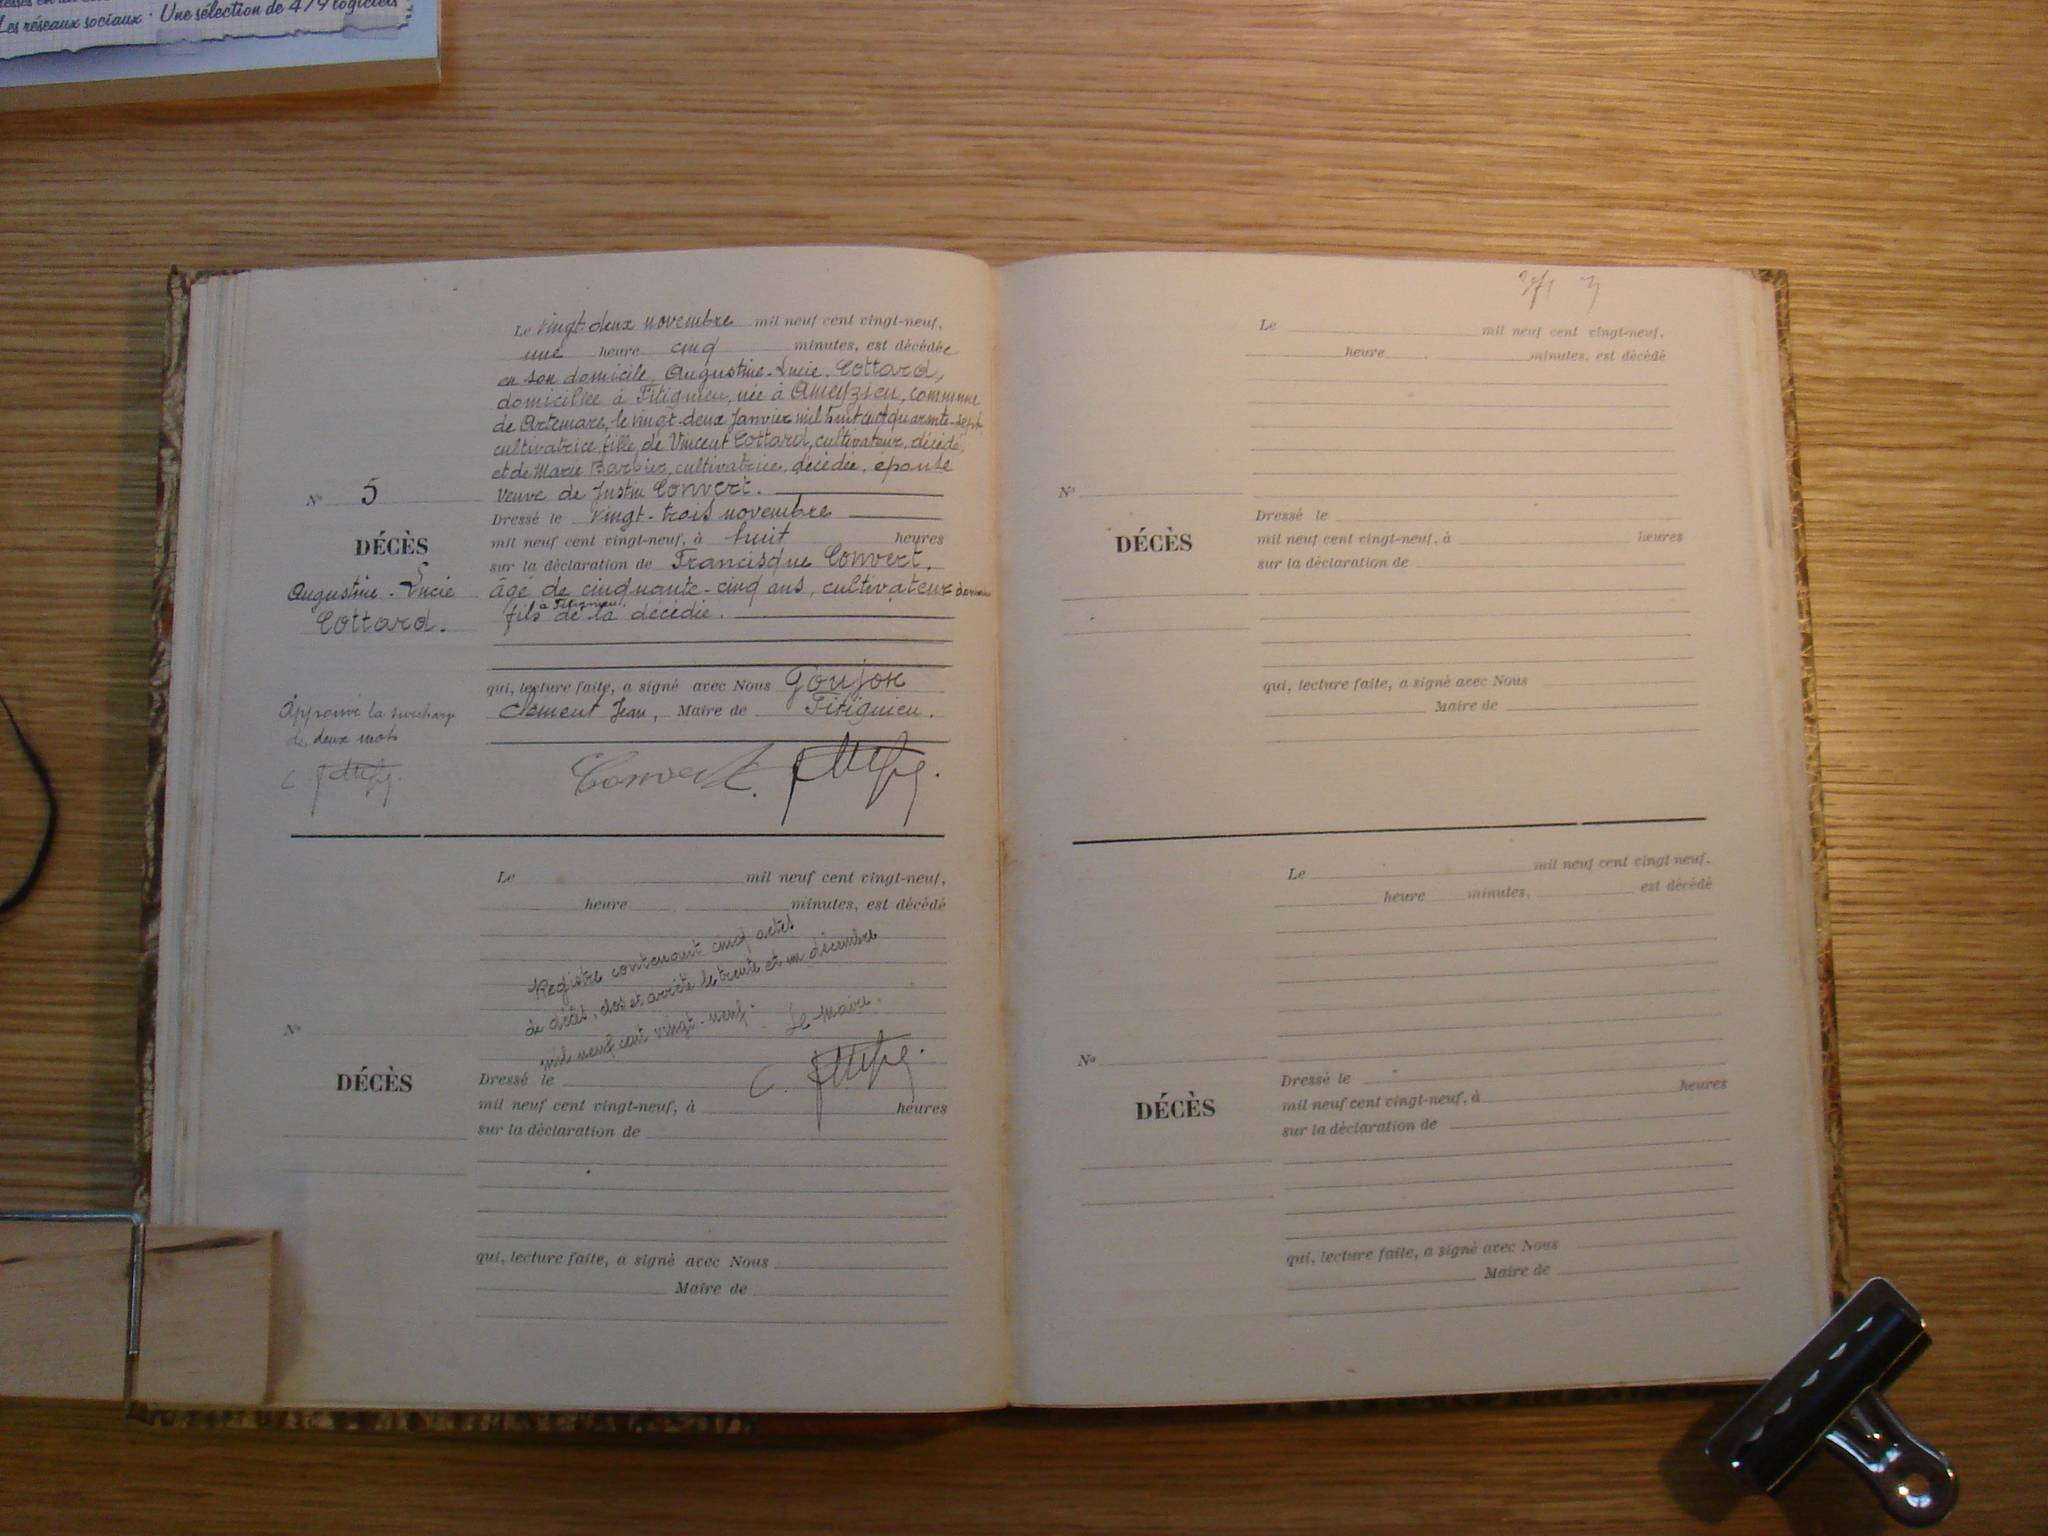 Les réseaux sociaux · Une sélection de 479 logiciels
Le vingt-deux novembre mil neuf cent vingt-neuf,
une heure cinq minutes, est décédée
en son domicile, Augustine-Lucie Cottard,
domiciliée à Fitignieu, née à Ameyzieu, commune
de Artemare, le vingt-deux Janvier mil huit cent quarante-sept
cultivatrice, fille de Vincent Cottard, cultivateur, décédé,
et de Marie Barbier, cultivatrice, décédée, épouse
veuve de Justin Convert.
N° 5
Dressé le vingt-trois novembre
mil neuf cent vingt-neuf, à huit heures
DÉCÈS
sur la déclaration de Francisque Convert,
Augustine-Lucie
âgé de cinquante-cinq ans, cultivateur
à Fitignieu,
Cottard.
fils de la décédée.
qui, lecture faite, a signé avec Nous Goujon
Clément Jean, Maire de Fitignieu.
Approuvé la surcharge
de deux mots
Convert.
Le mil neuf cent vingt-neuf,
heure minutes, est décédé
Registre contenant cinq actes
de décès, clos et arrêté le trente et un décembre
mil neuf cent vingt-neuf.
Le Maire.
N°
DÉCÈS
Dressé le
mil neuf cent vingt-neuf, à heures
sur la déclaration de
qui, lecture faite, a signé avec Nous
Maire de
Le mil neuf cent vingt-neuf,
heure minutes, est décédé
N°
Dressé le
mil neuf cent vingt-neuf, à heures
DÉCÈS
sur la déclaration de
qui, lecture faite, a signé avec Nous
Maire de
Le mil neuf cent vingt neuf,
heure minutes, est décédé
N°
Dressé le
mil neuf cent vingt-neuf, à heures
DÉCÈS
sur la déclaration de
qui, lecture faite, a signé avec Nous
Maire de